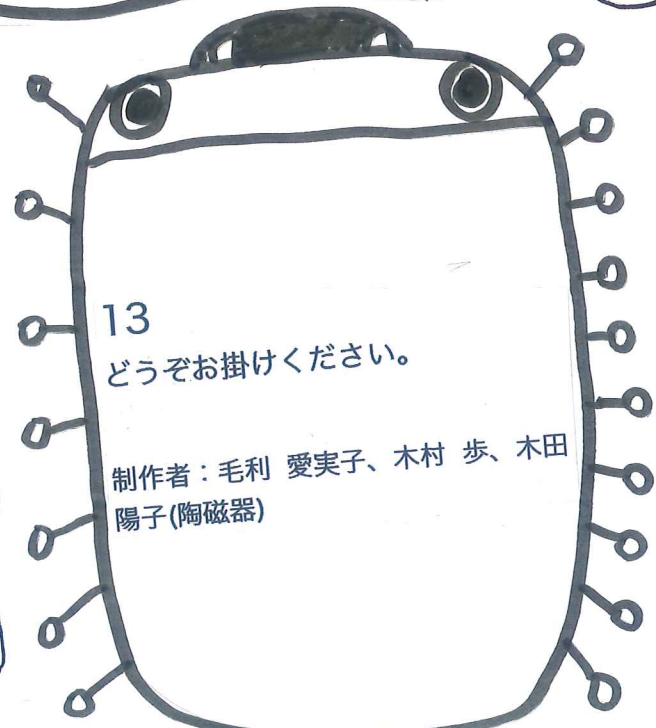 13
どうぞお掛けください。
制作者：毛利 愛実子、木村 歩、木田
陽子(陶磁器)